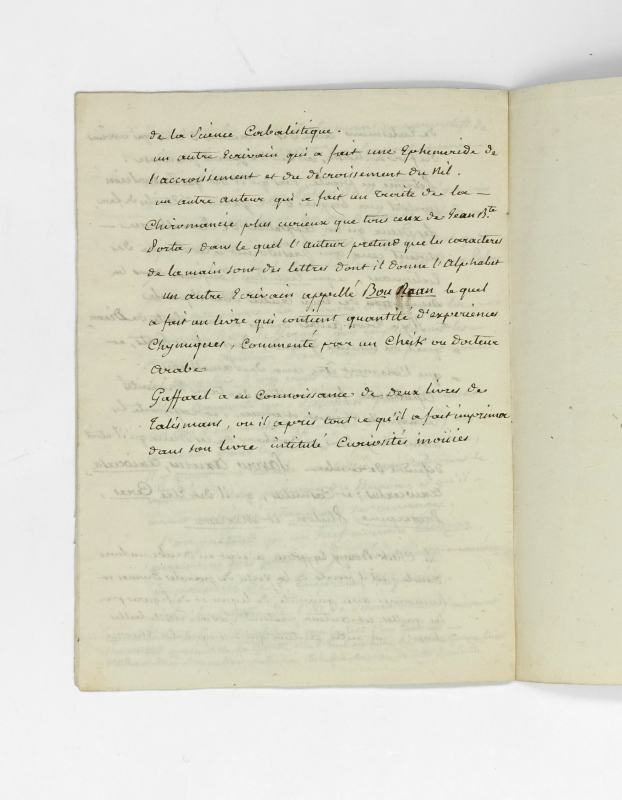 de la Science Cabalistique.
un autre Ecrivain qui a fait une Ephemeride de
l'accroissement et du décroissement du Nil.
un autre auteur qui a fait un Traité de la –
Chiromancie plus curieux que tous ceux de Jean Bte
Porta, dans le quel l'auteur pretend que les caracteres
de la main sont des lettres dont il donne l'Alphabet
un autre Ecrivain appellé Bou Raan le quel
a fait un livre qui contient quantité d'experiences
Chymiques, Commenté par un Cheik ou docteur
arabe
Gaffarel a eu Connoissance de deux livres de
Talismans, ou il a pris tout ce qu'il a fait imprimer
dans son livre intitulé Curiosités inoüies